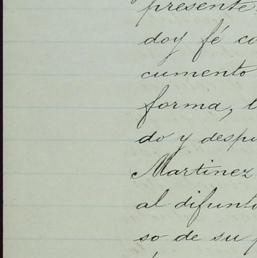 presente,
doy fé co
cumento
forma, l
do y despu
Martinez
al difunto
so de su p